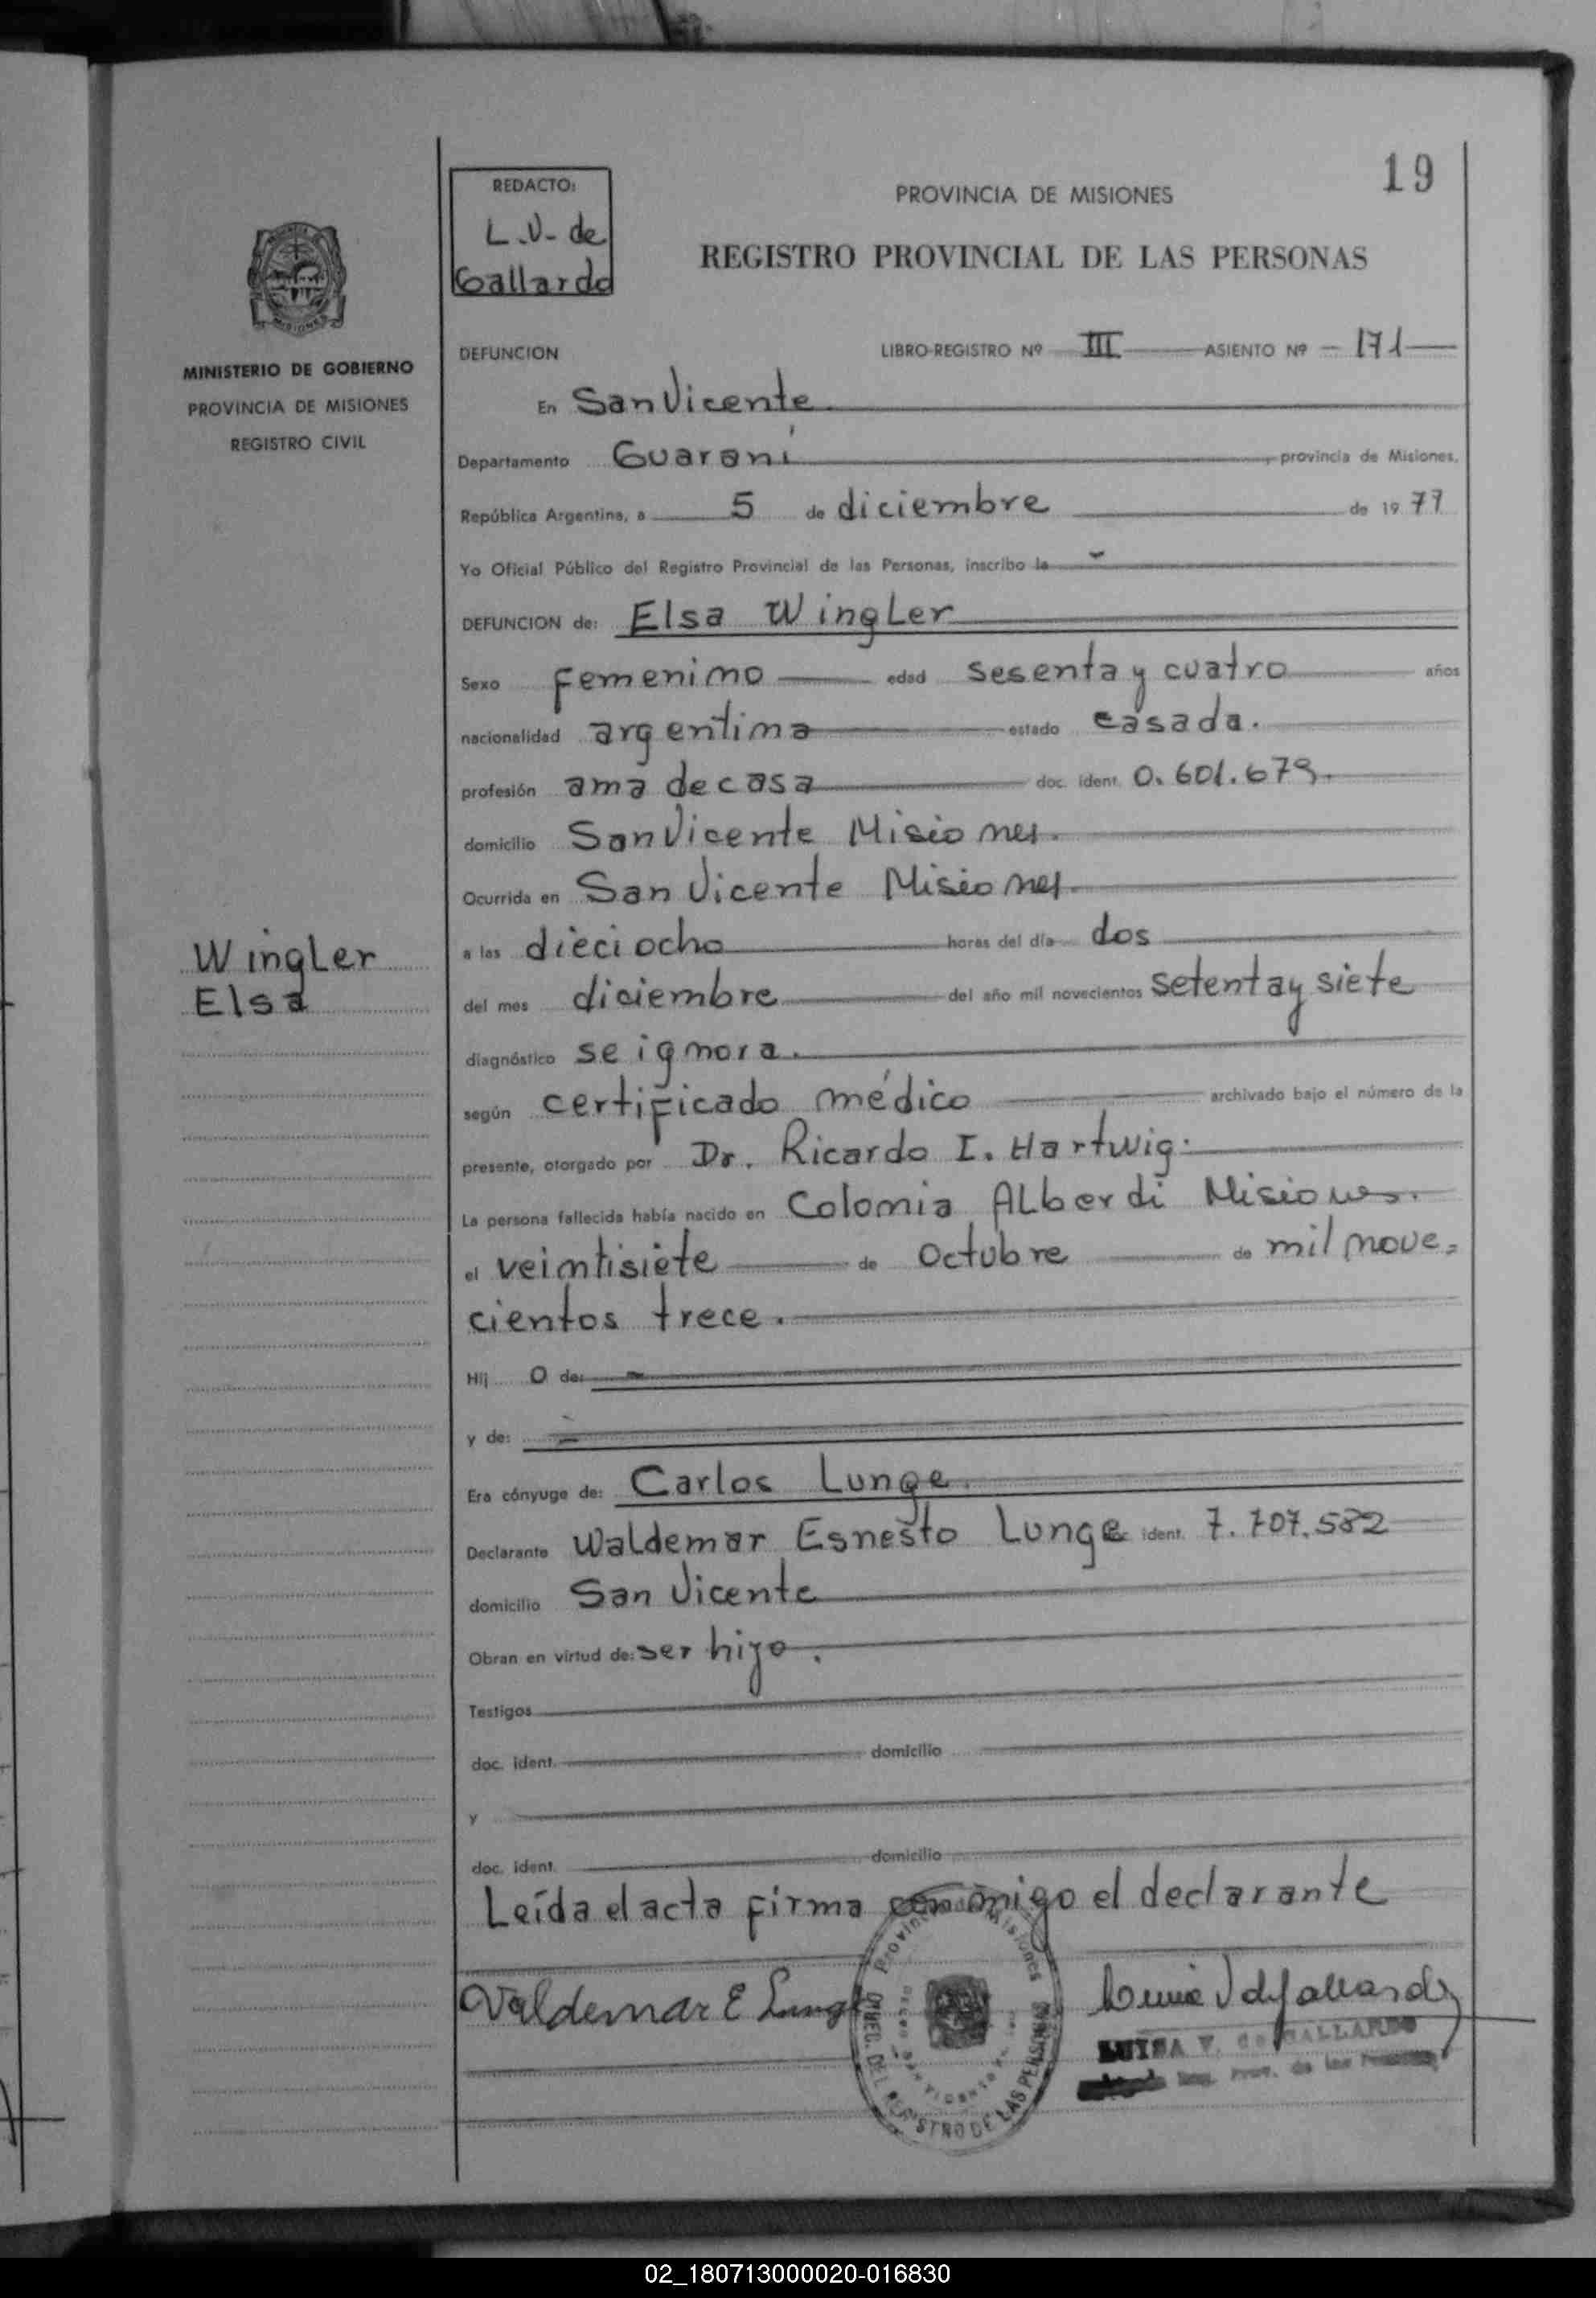 19
REDACTO:
L.V. de
Gallardo
PROVINCIA DE MISIONES
REGISTRO PROVINCIAL DE LAS PERSONAS
MINISTERIO DE GOBIERNO
PROVINCIA DE MISIONES
REGISTRO CIVIL
DEFUNCION LIBRO-REGISTRO Nº III ASIENTO Nº - 171
En San Vicente
Departamento Guaraní, provincia de Misiones,
República Argentina, a 5 de diciembre de 1977
Yo Oficial Público del Registro Provincial de las Personas, inscribo la
DEFUNCION de: Elsa Wingler
Sexo femenino edad sesenta y cuatro años
nacionalidad argentina estado casada.
profesión ama de casa doc. ident. 0.601.679.
domicilio San Vicente Misiones.
Ocurrida en San Vicente Misiones.
a las dieciocho horas del día dos
del mes diciembre del año mil novecientos setenta y siete
diagnóstico se ignora.
según certificado médico archivado bajo el número de la
presente, otorgado por Dr. Ricardo I. Hartwig.
La persona fallecida había nacido en Colonia Alberdi Misiones.
el veintisiete de Octubre de mil nove=
cientos trece.
Hij o de: -
y de: -
Era cónyuge de: Carlos Lunge.
Declarante Waldemar Esnesto Lunge ident. 7.707.582
domicilio San Vicente
Obran en virtud de: ser hijo.
Testigos
doc. ident. domicilio
y
doc. ident. domicilio
Leída el acta firma conmigo el declarante
Wingler
Elsa
Valdemar E Lunge
Provincia de Misiones
DIREC. DEL REGISTRO DE LAS PERSONAS
LUISA V. de GALLARDO
Reg. Prov. de las Personas
02_180713000020-016830